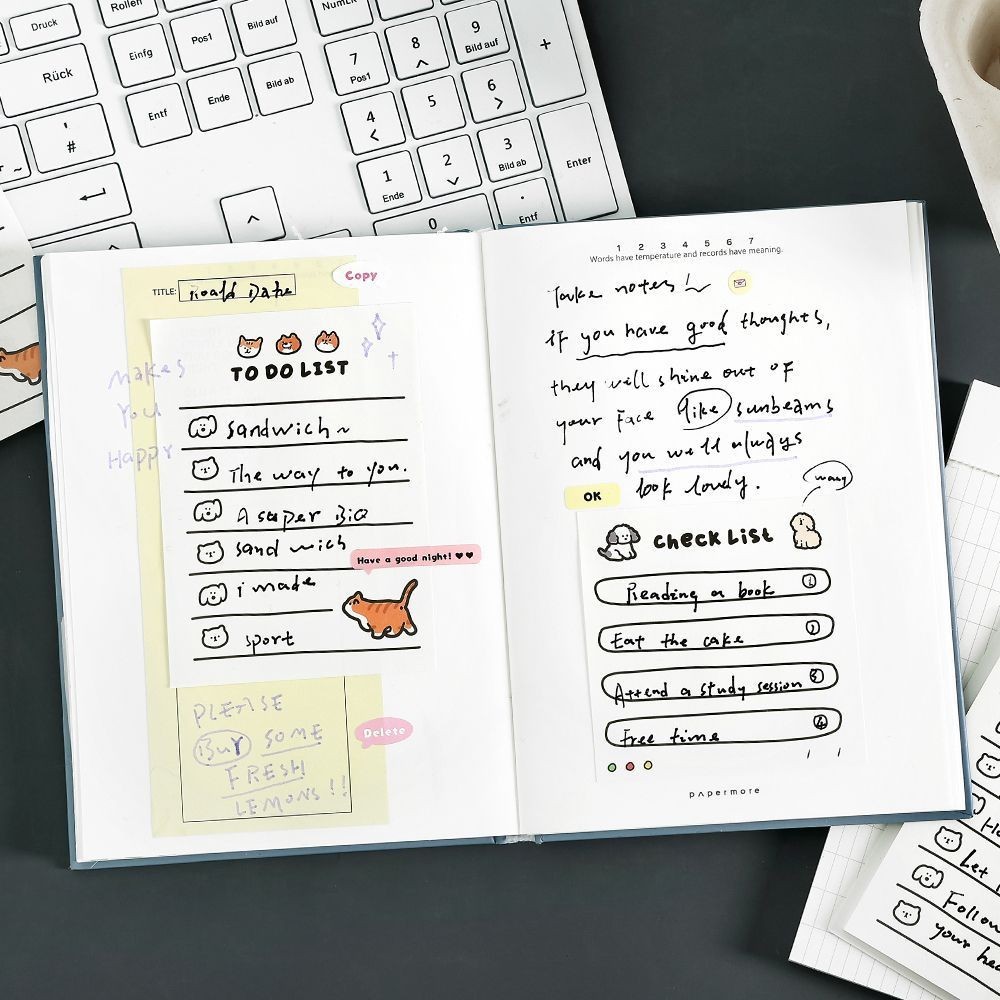 Druck
Rollen
NumLk
Einfg
Pos1
Bild auf
Rück
Entf
Ende
Bild ab
7
Pos1
8
9
Bild auf
+
4
5
6
1
Ende
2
3
Bild ab
Enter
0
.
Entf
'
#
~
Copy
TITLE: Roald Dahe
TO DO LIST
makes
You
Happy
sandwich~
The way to you.
A super BiG
sandwich
i made
Have a good night! ♥♥
sport
PLEASE
BUY SOME
FRESH
LEMONS!!
Delete
1 2 3 4 5 6 7
Words have temperature and records have meaning.
Take notes!~
if you have good thoughts,
they will shine out of
your Face like sunbeams
and you will always
look lovely.
OK
wang
CHECK LIST
Reading a book 1
Eat the cake 2
Attend a study session 3
Free time 4
papermore
Let
Follow
your hea